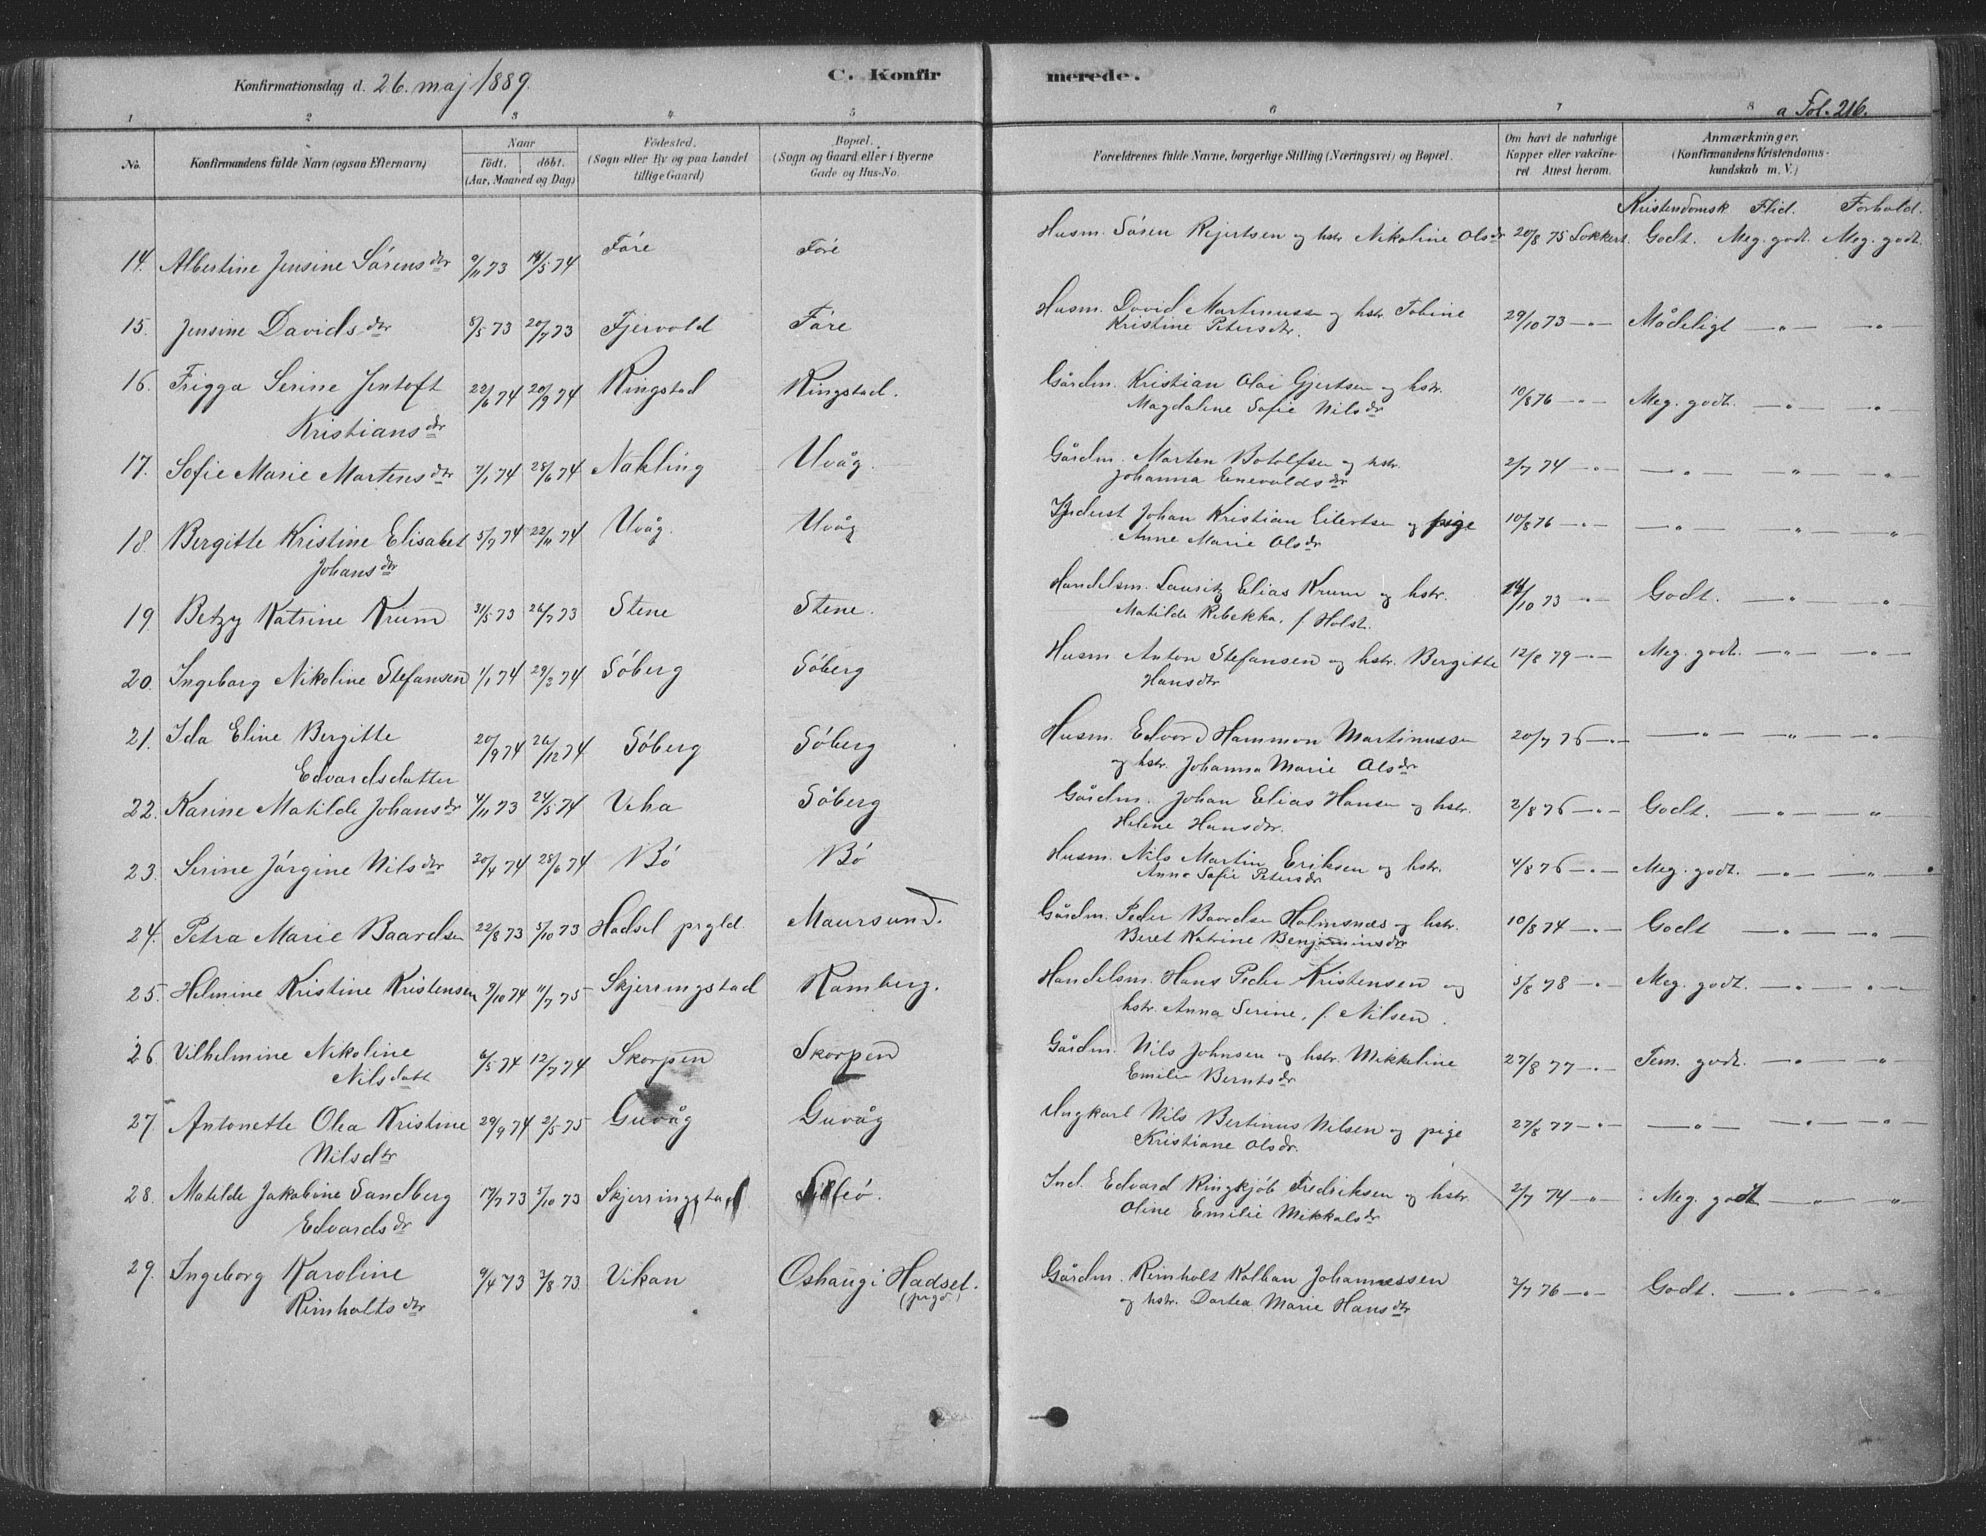 Konfirmationsdag d. 26. maj 1889. C. Konfirmerede. a Fol. 216.
1 2 3 4 5 6 7 8
No. Konfirmandens fulde Navn (ogsaa Efternavn) Naar født. døbt. (Aar, Maaned og Dag) Fødested. (Sogn eller By og paa Landet tillige Gaard) Bopæl. (Sogn og Gaard eller i Byerne Gade og Hus-No. Forældrenes fulde Navne, borgerlige Stilling (Næringsvei) og Bopæl. Om havt de naturlige Kopper eller vakcineret Attest herom. Anmærkninger. (Konfirmandens Kristendomskundskab m. V.)
Kristendomsk. Flid. Forhold.
14. Albertine Jensine Sørensdtr 9/11 73 14/5 74 Føre Føre Husm. Søren Rejertsen og hstr. Nikoline Olsdr 20/8 75 Lokkert. Godt. Meg. godt. Meg. godt.
15. Jensine Davidsdtr 8/5 73 20/7 73 Fjervold Føre Husm. David Martinussen og hstr. Tobine
Kristine Petersdtr. 29/10 73 —„— Mådeligt —„— „
16. Frigga Serine Jentoft
Kristiansdtr 22/6 74 20/9 74 Ringstad Ringstad. Gårdm. Kristian Olai Gjertsen og hstr.
Magdaline Sofie Nilsdr 10/8 76 —„— Meg. godt. —„— „
17. Sofie Marie Martensdtr 7/1 74 28/6 74 Nakling Uvåg. Gårdm. Marten Botolfsen og hstr.
Johanna Enevoldsdr 2/7 74 —„— —„— „ „
18. Bergitte Kristine Elisabet
Johansdtr 5/9 74 22/11 74 Uvåg. Uvåg Inderst Johan Kristian Eilertsen og pige
Anne Marie Olsdr 10/8 76 —„— —„— „ „
19. Betzy Katrine Krum 31/5 73 26/7 73 Stene Stene. Handelsm. Lauritz Elias Krum og hstr.
Matilde Rebekka, f. Holst. 24/10 73 —„— Godt. —„— „
20. Ingeborg Nikoline Stefansen 1/1 74 29/3 74 Søberg Søberg Husm. Anton Stefansen og hstr. Bergitte
Hansdtr 12/8 79 —„— Meg. godt. —„— „
21. Ida Eline Bergitte
Edvardsdatter 20/9 74 26/12 74 Søberg Søberg Husm. Edvard Hammon Martinussen
og hstr. Johanna Marie Olsdr 20/7 76 —„— —„— „ „
22. Karine Matilde Johansdr 4/11 73 24/5 74 Veha Søberg Gårdm. Johan Elias Hansen og hstr.
Helene Hansdtr. 2/8 76 —„— Godt. —„— „
23. Serine Jørgine Nilsdtr 20/4 74 28/6 74 Bø Bø Husm. Nils Martin Eriksen og hstr.
Anna Sofie Petersdr 4/8 76 —„— Meg. godt. —„— „
24. Petra Marie Baardsen 22/8 73 5/10 73 Hadsel prgld. Maursund. Gårdm. Peder Baardsen Holmsnæs og hstr.
Beret Katrine Benjaminsdr 10/8 74 —„— Godt —„— „
25. Helmine Kristine Kristensen 9/10 74 11/7 75 Skjerringstad Ramberg. Handelsm. Hans Peder Kristensen og
hstr. Anna Serine, f. Nilsen. 5/8 78 —„— Meg. godt. —„— „
26 Vilhelmine Nikoline
Nilsdatt 6/5 74 12/7 74 Skorpen Skorpen Gårdm. Nils Johnsen og hstr. Mikkeline
Emilie Berntsdr 27/8 77 —„— Tem. godt. —„— „
27. Antonette Olea Kristine
Nilsdtr 29/9 74 2/5 75 Guvåg Guvåg Ungkarl Nils Bertinus Nilsen og pige
Kristiane Olsdr. 27/8 77 —„— —„— „ „
28. Matilde Jakobine Sandberg
Edvardsdr 17/7 73 5/10 73 Skjerringstad Ind. Edvard Ringkjøb Fredriksen og hstr.
Oline Emilie Mikkalsdr 2/7 74 —„— Meg. godt —„— „
29. Ingeborg Karoline
Rimholtsdtr 9/4 73 3/8 73 Vikan Oshaug i Hadsel.
(prgd.) Gårdm. Rimholt Kolban Johannessen
og hstr. Dortea Marie Hansdtr 2/7 76 —„— Godt. —„— „